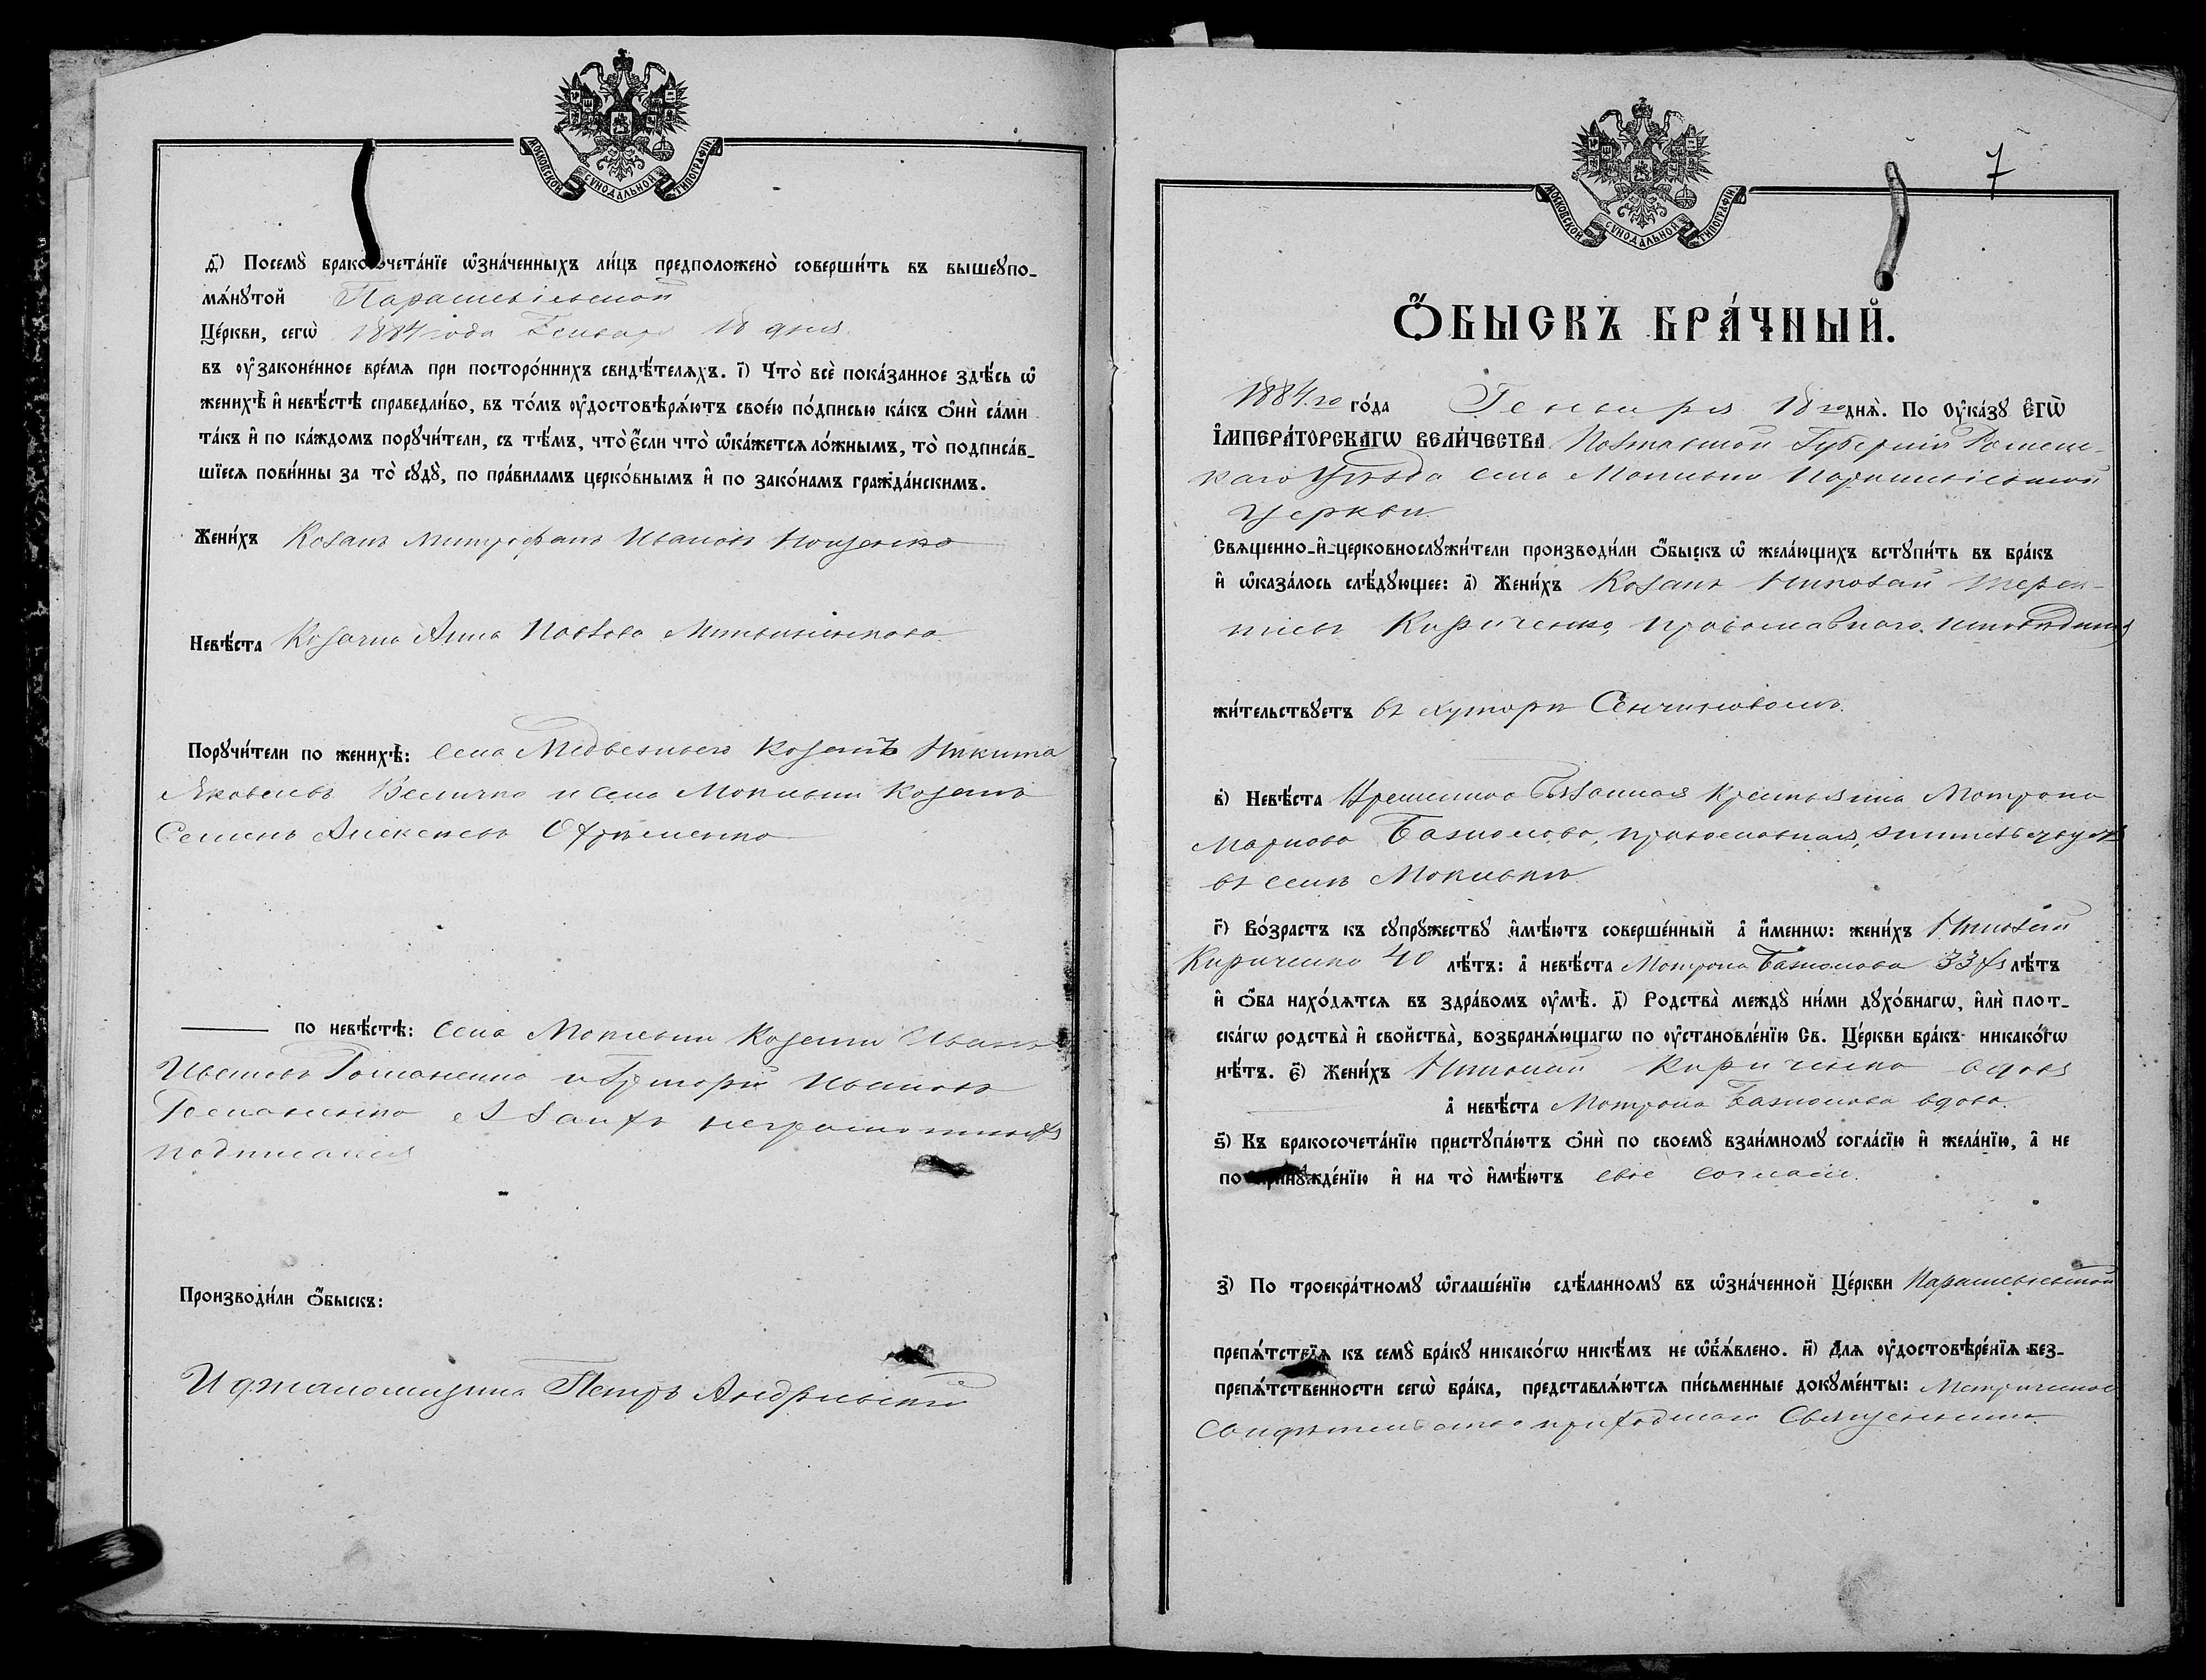 МОСКОВСКОЙ СѴНОДАЛЬНОЙ ТИПОГРАФІИ
д҃і) Посемꙋ̀ бракосочета́нїе ѡ҆зна́ченныхъ ли́цъ предположено̀ соверши́ть въ вышеꙋпо-
мѧ́нꙋтой Параскевіевской
Це́ркви, сегѡ̀ 1884 года Генваря 18 дня
въ ᲂу҆законе́нное вре́мѧ при посторо́ннихъ свидѣ́телѧхъ. і҃) Что̀ всѐ пока́занное здѣ́сь ѡ҆
женихѣ̀ и҆ невѣ́стѣ справедли́во, въ то́мъ ᲂу҆достовѣрѧ́ютъ своею̀ по́дписью ка́къ ѻ҆нѝ са́ми
та́къ и҆ по ка́ждомъ порꙋчи́тели, съ тѣ́мъ, что̀ є҆́сли что̀ ѡ҆ка́жетсѧ ло́жнымъ, то̀ подписа́в-
шїесѧ пови́нны за то̀ сꙋдꙋ̀, по пра́виламъ церко́внымъ и҆ по зако́намъ гражда́нскимъ.
Жени́хъ Козакъ Митрофанъ Ивановъ
Невѣ́ста Козачка Анна Павлова
Порꙋчи́тели по женихѣ̀: села Медвежьего Козакъ Никита
Яковлевъ Величко и села Мокіевки Козакъ
Семенъ Алексѣевъ Ефименко
по невѣ́стѣ: села Мокіевки Козаки Иванъ
Ивановъ Романенко и Григорій Ивановъ
Романенко А за ихъ неграмотныхъ
подписался
Производи́ли ѻ҆́быскъ:
Петръ Андріевскій
МОСКОВСКОЙ СѴНОДАЛЬНОЙ ТИПОГРАФІИ
7
Ѻ҆́БЫСКЪ БРА́ЧНЫЙ.
1884 го го́да Генваря 18 го днѧ̀. По Ѹ҆ка́зꙋ Є҆ГѠ̀
І҆МПЕРА́ТОРСКАГѠ ВЕЛИ́ЧЕСТВА Полтавской Губерніи Роменс-
каго Уѣзда села Мокіевки Параскевіевской
Церкви
Свѧщенно-и҆-церковнослꙋжи́тели производи́ли ѻ҆́быскъ ѡ҆ жела́ющихъ встꙋпи́ть въ бра́къ
и҆ ѡ҆каза́лось слѣ́дꙋющее: а҃) Жени́хъ Козакъ Николай Терен-
тіевъ Кириченко, православнаго исповѣданія
жи́тельствꙋетъ въ хуторѣ Сенчиковомъ.
в҃) Невѣ́ста Временно обязанная крестьянка Мотрона
Маркова Бажанова, православная, жительствуетъ
въ селѣ Мокіевкѣ
г҃) Во́зрастъ къ сꙋпрꙋ́жествꙋ и҆мѣ́ютъ соверше́нный а҆ и҆́меннѡ: жени́хъ Николай
Кириченко 40 лѣ́тъ: а҆ невѣ́ста Мотрона Бажанова 33 хъ лѣ́тъ
и҆ ѻ҆́ба нахо́дѧтсѧ въ здра́вомъ ᲂу҆мѣ̀. д҃) Родства̀ междꙋ̀ ни́ми дꙋхо́внагѡ, и҆лѝ плот-
скагѡ родства̀ и҆ сво́йства, возбранѧ́ющагѡ по ᲂу҆становле́нїю Св. Це́ркви бра́къ никако́гѡ
нѣ́тъ. є҃) Жени́хъ Николай Кириченко вдовъ
а҆ невѣ́ста Мотрона Бажанова вдова.
ѕ҃) Къ бракосочета́нїю пристꙋпа́ютъ ѻ҆нѝ по своемꙋ̀ взаи́мномꙋ согла́сїю и҆ жела́нїю, а҆ не
по принꙋжде́нїю и҆ на то̀ и҆мѣ́ютъ свое согласіе.
з҃) По троекра́тномꙋ ѡ҆глаше́нїю сдѣ́ланномꙋ въ ѡ҆зна́ченной Це́ркви Параскевіевской
препѧ́тствїѧ къ семꙋ̀ бра́кꙋ никако́гѡ никѣ́мъ не ѡ҆б̾ѧ́влено. и҃) Длѧ ᲂу҆достовѣре́нїѧ без-
препѧ́тственности сегѡ̀ бра́ка, представлѧ́ютсѧ пи́сьменные докꙋме́нты: Метрическое
Свидѣтельство приходскаго Священника.